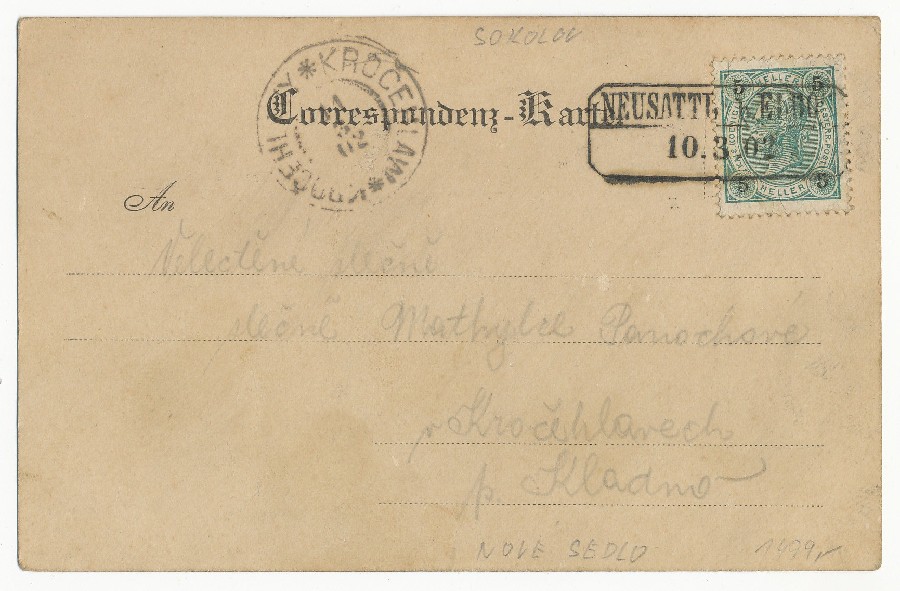 SOKOLOV
Correspondenz-Karte
NEUSATTL ELBO
10.3.02
5 HELLER 5
5 HELLER 5
An
Veledtěné slečně
slečně Mathylce Panochové
v Kročehlavech
p. Kladno
NOVE SEDLO
1499,-